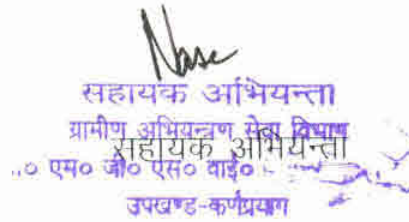 सहायक अभियन्ता
ग्रामीण अभियन्त्रण सेवा विभाग
सहायक अभियन्ता
० एम० जी० एस० वाई०
उपखण्ड-कर्णप्रयाग